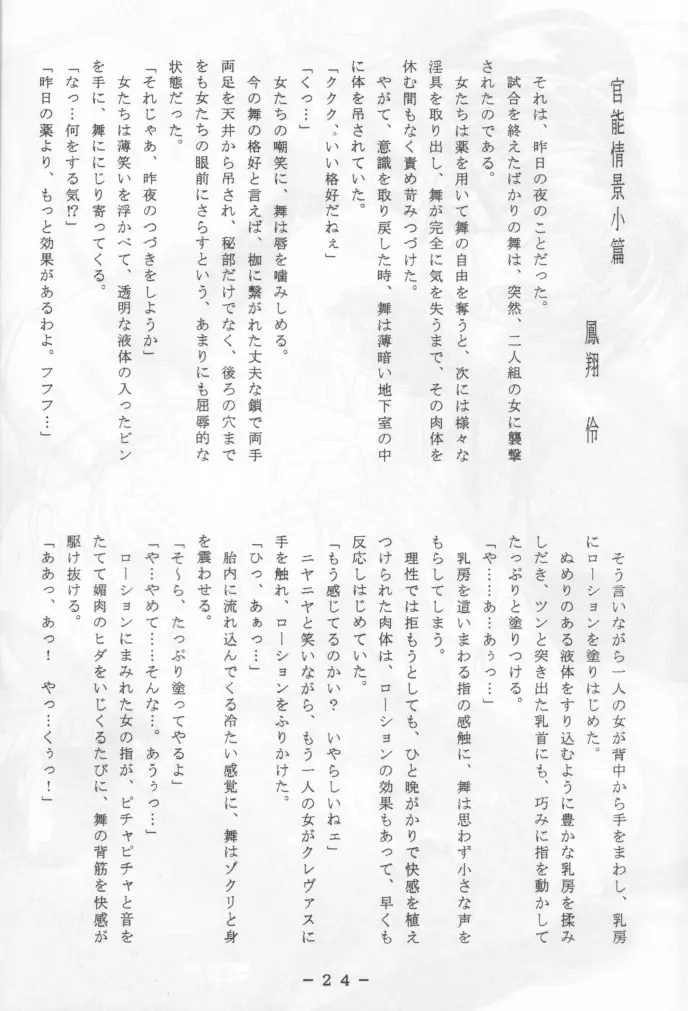 官能情景小篇
鳳翔　伶
それは、昨日の夜のことだった。
試合を終えたばかりの舞は、突然、二人組の女に襲撃
されたのである。
女たちは薬を用いて舞の自由を奪うと、次には様々な
淫具を取り出し、舞が完全に気を失うまで、その肉体を
休む間もなく責め苛みつづけた。
やがて、意識を取り戻した時、舞は薄暗い地下室の中
に体を吊されていた。
「ククク、いい格好だねぇ」
「くっ…」
女たちの嘲笑に、舞は唇を噛みしめる。
今の舞の格好と言えば、枷に繋がれた丈夫な鎖で両手
両足を天井から吊され、秘部だけでなく、後ろの穴まで
をも女たちの眼前にさらすという、あまりにも屈辱的な
状態だった。
「それじゃあ、昨夜のつづきをしようか」
女たちは薄笑いを浮かべて、透明な液体の入ったビン
を手に、舞ににじり寄ってくる。
「なっ…何をする気!?」
「昨日の薬より、もっと効果があるわよ。フフフ…」
そう言いながら一人の女が背中から手をまわし、乳房
にローションを塗りはじめた。
ぬめりのある液体をすり込むように豊かな乳房を揉み
しだき、ツンと突き出た乳首にも、巧みに指を動かして
たっぷりと塗りつける。
「や……あ…あぅっ…」
乳房を這いまわる指の感触に、舞は思わず小さな声を
もらしてしまう。
理性では拒もうとしても、ひと晩がかりで快感を植え
つけられた肉体は、ローションの効果もあって、早くも
反応しはじめていた。
「もう感じてるのかい？　いやらしいねェ」
ニヤニヤと笑いながら、もう一人の女がクレヴァスに
手を触れ、ローションをふりかけた。
「ひっ、あぁっ…」
胎内に流れ込んでくる冷たい感覚に、舞はゾクリと身
を震わせる。
「そ〜ら、たっぷり塗ってやるよ」
「や…やめて……そんな…。あうぅっ…」
ローションにまみれた女の指が、ピチャピチャと音を
たてて媚肉のヒダをいじくるたびに、舞の背筋を快感が
駆け抜ける。
「ああっ、あっ！　やっ…くぅっ！」
－２４－